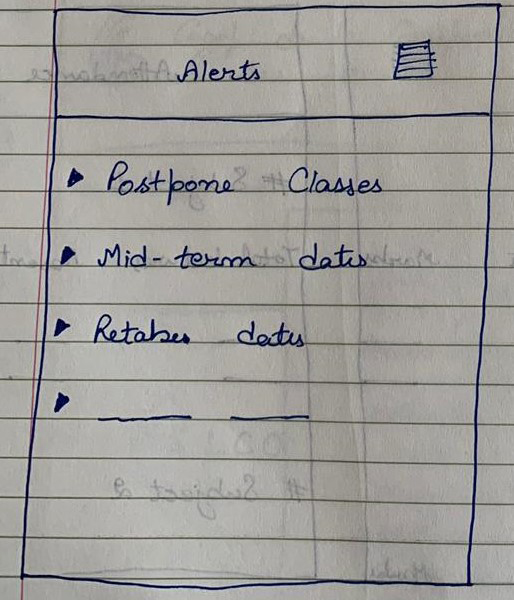 Alerts
Postpone Classes
Mid-term dates
Retakes dates